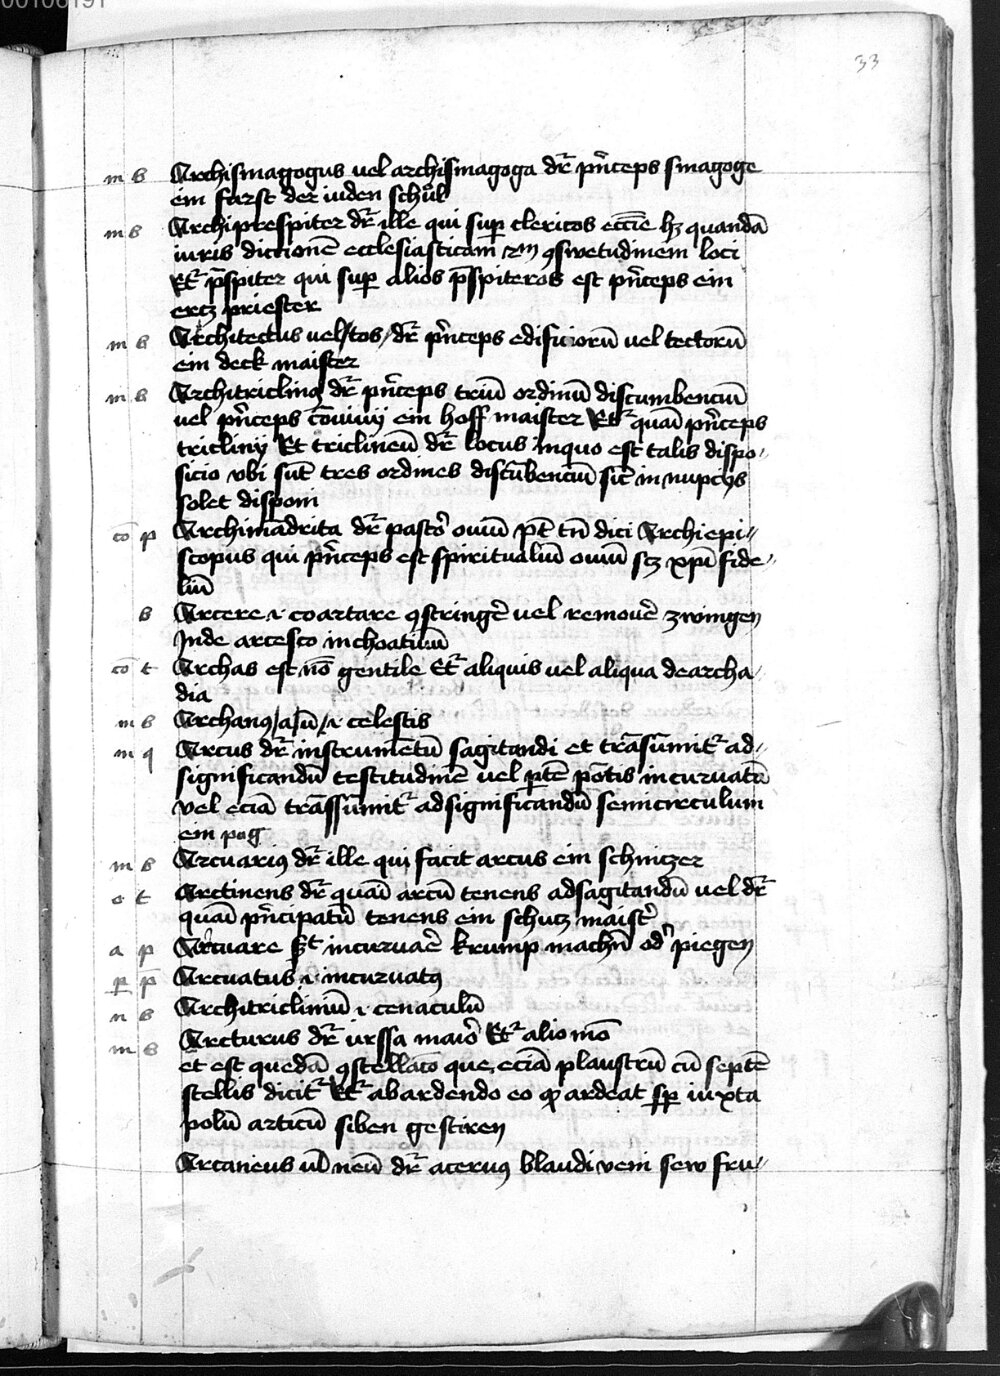 00106191
33
m b Archisinagogus vel archisinagoga dr̄ pn̄ceps sinagoge
ein furst der iuden schůl
m b Archiprespiter dr̄ ille qui sup̄ clericos eccīe hꝫ quandā
iuris dictionē ecclesiasticam ꝯswetudinem loci
Et̄ p̄spiter qui sup̄ alios p̄spiteros est pn̄ceps ein
ertz priester
m b Architectus vel /tos/ dr̄ pn̄ceps edificiorū vel tectorū
ein deck maister
m b Architriclinꝰ dr̄ pn̄ceps triū ordinū discumbenciū
vel pn̄ceps cōviuij ein hoff maister Et̄ quasi pn̄ceps
tricliny Et tricliniū dr̄ locus inquo est talis dispo-
sicio vbi sūt tres ordines discūbenciū sic̄ in nupcijs
solet disponi
cō p Archimādrita dr̄ pastor̄ ouiū pt̄ tn̄ dici Archiepi-
scopus qui pn̄ceps est spiritualiū ouiū scꝫ xp̄i fide-
liū
b Arcere .i. coartare ꝯstringē vel remouē zwingen
Inde arcesco inchoatiuū
cō t Archas est nō gentile Et̄ aliquis vel aliqua de archa-
dia
m b Archanꝰ /a/ū/ .i. celestis
m q Arcus dr̄ instrumētū sagitandi et trāsūmit̄ ad-
significandū testitudinē vel ptē pōtis incuruatā
vel eciā trāssūmit̄ ad significandū semicirculum
ein pog
m b Arcuariꝰ dr̄ ille qui facit arcus ein schnitzer
o t Arctinens dr̄ quasi arcū tenens ad sagitandū vel dr̄
quasi pn̄cipatū tenens ein schutz maist̄
a p Arcuare incuruar̄ krump machn̄ od̄ piegen
p p Arcuatus .i. incuruatꝰ
n b Architricliniū .i. cenaculū
m b Arcturus dr̄ urssa maior̄ Et̄ alio mō
et est quedā ꝯstellacō que eciā plaustrū cū septē
stellis dicit̄ Et̄ ab ardendo eo ꝙ ardeat sp̄ iuxta
polū articū siben gestiren
Arcaneus vl̄ neū dr̄ aceruꝰ blaudi veni sew fru-